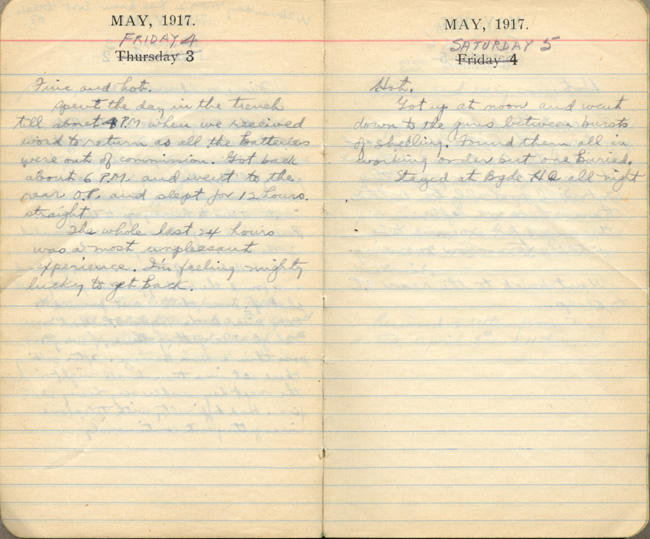 MAY, 1917.
FRIDAY 4
Thursday 3
Fine and hot.
Spent the day in the trench
till about 4 PM when we received
word to return as all the batteries
were out of commision. Got back
about 6 P.M. and went to the
rear O.P. and slept for 12 hours.
straight.
The whole last 24 hours
was a most unpleasant
experience. I'm feeling mighty
lucky to get back.
MAY, 1917.
SATURDAY 5
Friday 4
Hot.
Got up at noon and went
down to the guns between bursts
of shelling. Found them all in
working order but one buried.
Stayed at Bgde HQ all night